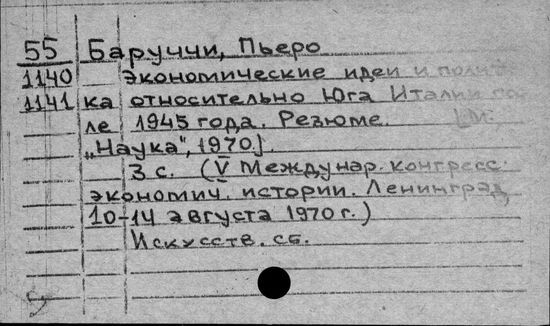 55 Баруччи, Пьеро
1140 экономические идеи и полити
1141 ка относительно Юга Италии по
ле 1945 года. Резюме. [М.
„Наука", 1970].
3 с. (V Междунар. конгресс
экономич. истории. Ленинград
10-14 августа 1970 г.)
Искусств. сб.